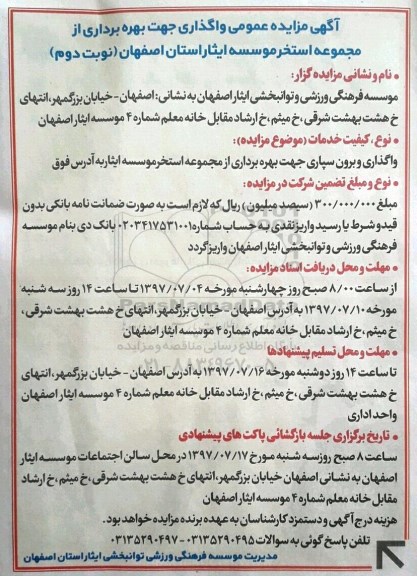 آگهی مزایده عمومی واگذاری جهت بهره برداری از
مجموعه استخر موسسه ایثار استان اصفهان (نوبت دوم)
• نام و نشانی مزایده گزار:
موسسه فرهنگی ورزشی و توانبخشی ایثار اصفهان به نشانی: اصفهان - خیابان بزرگمهر، انتهای
خ هشت بهشت شرقی، خ میثم، خ ارشاد مقابل خانه معلم شماره ۴ موسسه ایثار اصفهان
• نوع، کیفیت خدمات (موضوع مزایده):
واگذاری و برون سپاری جهت بهره برداری از مجموعه استخر موسسه ایثار به آدرس فوق
• نوع و مبلغ تضمین شرکت در مزایده:
مبلغ ۳۰۰/۰۰۰/۰۰۰ (سیصد میلیون) ریال که لازم است به صورت ضمانت نامه بانکی بدون
قید و شرط یا رسید واریز نقدی به حساب شماره ۰۲۰۳۴۱۷۵۳۱۰۰۱ بانک دی بنام موسسه
فرهنگی ورزشی و توانبخشی ایثار اصفهان واریز گردد
• مهلت و محل دریافت اسناد مزایده:
از ساعت ۸/۰۰ صبح روز چهارشنبه مورخه ۱۳۹۷/۰۷/۰۴ تا ساعت ۱۴ روز سه شنبه
مورخه ۱۳۹۷/۰۷/۱۰ به آدرس اصفهان - خیابان بزرگمهر، انتهای خ هشت بهشت شرقی،
خ میثم، خ ارشاد مقابل خانه معلم شماره ۴ موسسه ایثار اصفهان
• مهلت و محل تسلیم پیشنهادها
تا ساعت ۱۴ روز دوشنبه مورخه ۱۳۹۷/۰۷/۱۶ به آدرس اصفهان - خیابان بزرگمهر، انتهای
خ هشت بهشت شرقی، خ میثم، خ ارشاد مقابل خانه معلم شماره ۴ موسسه ایثار اصفهان
واحد اداری
• تاریخ برگزاری جلسه بازگشائی پاکت های پیشنهادی
ساعت ۸ صبح روز سه شنبه مورخ ۱۳۹۷/۰۷/۱۷ در محل سالن اجتماعات موسسه ایثار
اصفهان به نشانی اصفهان خیابان بزرگمهر، انتهای خ هشت بهشت شرقی، خ میثم، خ ارشاد
مقابل خانه معلم شماره ۴ موسسه ایثار اصفهان
هزینه درج آگهی و دستمزد کارشناسان به عهده برنده مزایده خواهد بود.
تلفن پاسخ گوئی به سوالات ۰۳۱۳۵۲۹۰۴۹۵ - ۰۳۱۳۵۲۹۰۴۹۷
مدیریت موسسه فرهنگی ورزشی توانبخشی ایثار استان اصفهان